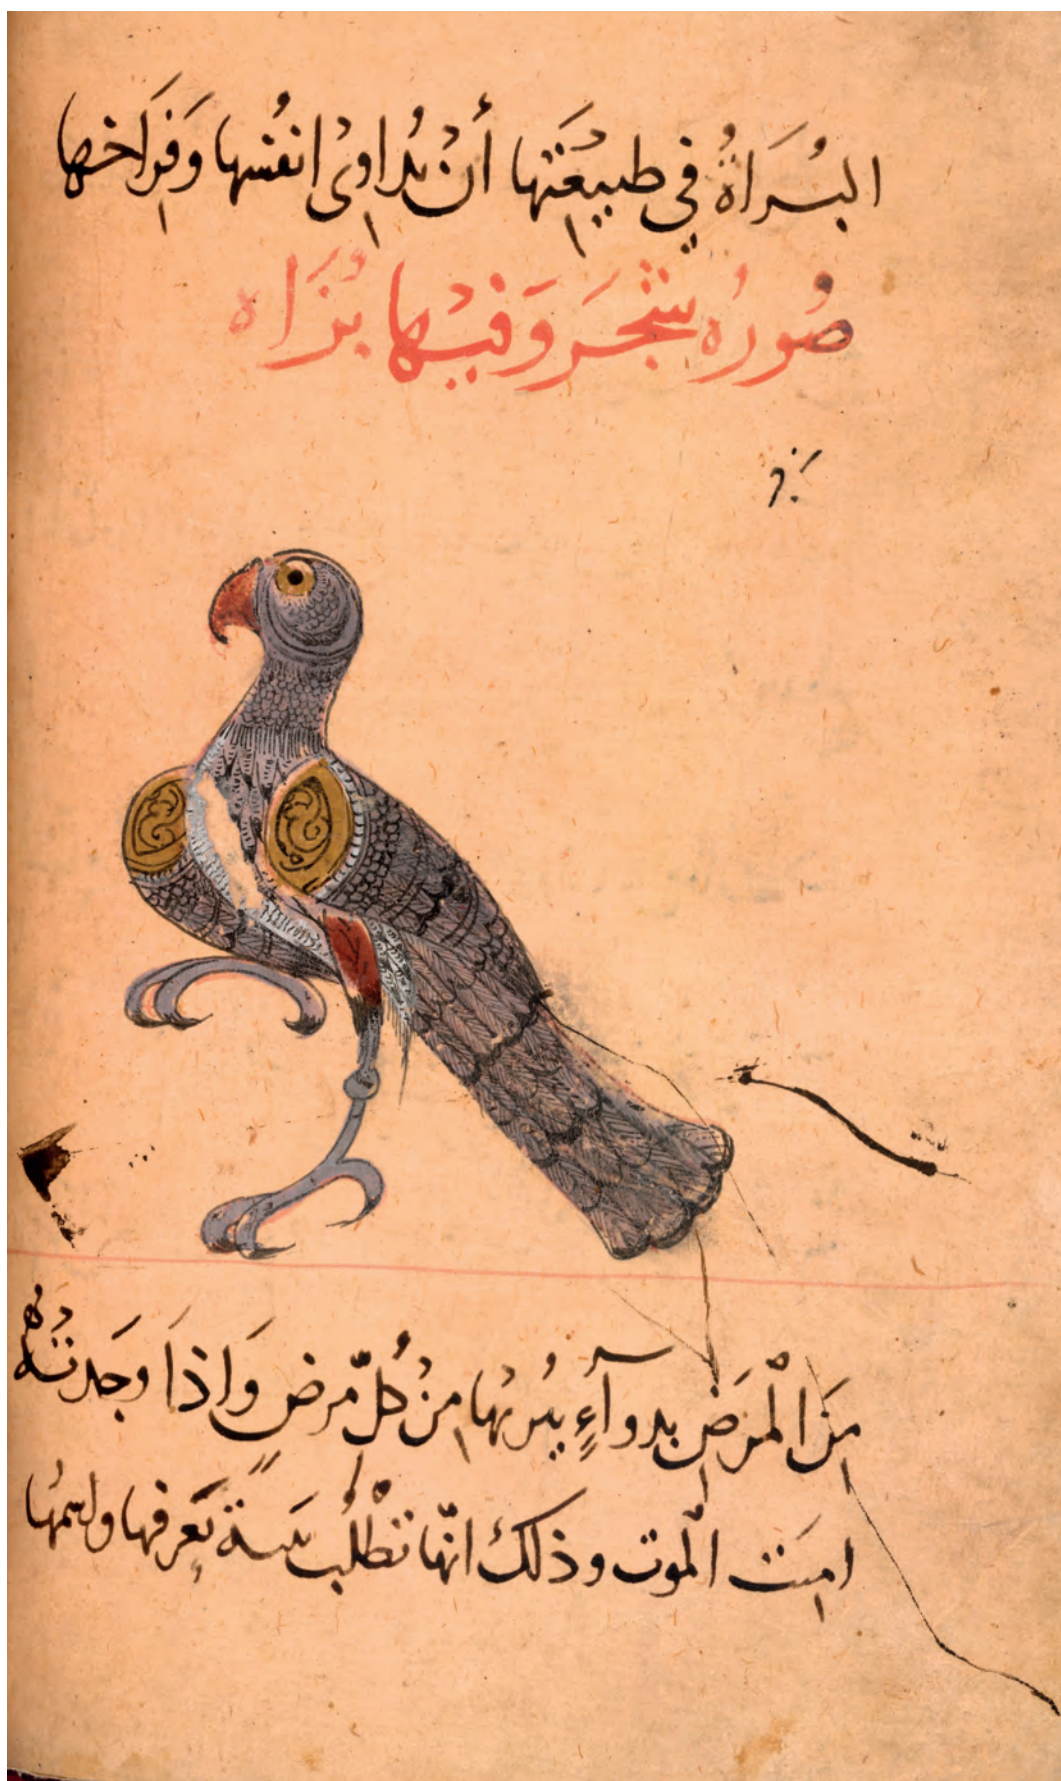 البُزَاةُ في طبيعَتها أنْ تُداوىْ انفُسها وَفِرَاخها
صُورةُ شَجَر وَفيْها بُزَاه
مِنَ الْمرَضِ بدوآءٍ يبُرئها مِنْ كُلّ مَرضٍ وَاِذَا وجَدتْهُ
امِنَت الْموت وذلك انّها تطْلُب نبتة تعرفها